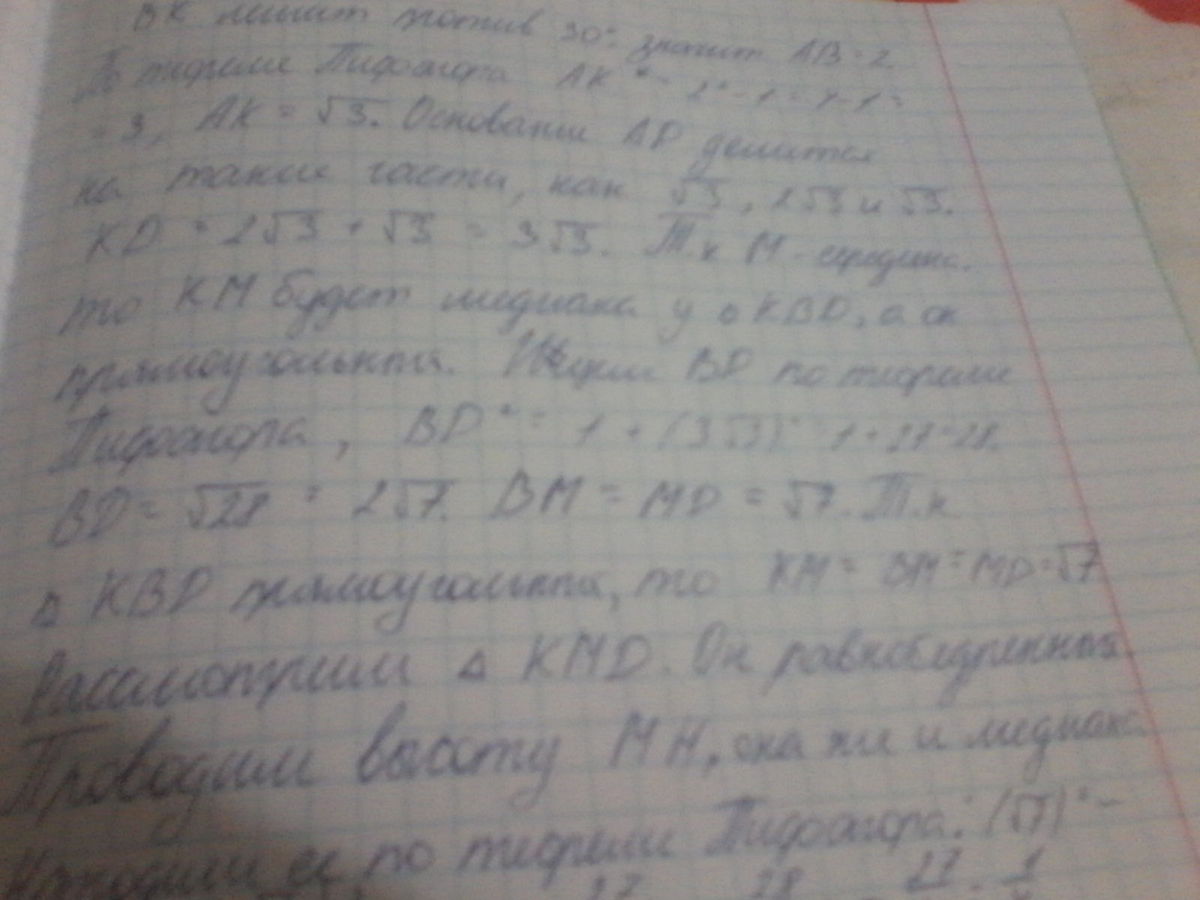 ВК лежит против 30°. значит АВ = 2
По теореме Пифагора АК² = 2² - 1 = 4 - 1 =
= 3, АК = √3. Основание AD делится
на такие части, как √3, 2√3 и √3.
KD = 2√3 + √3 = 3√3. Т.к М - середина.
то КМ будет медиана у △ KBD, а он
прямоугольный. Ищем BD по теореме
Пифагора, BD² = 1 + (3√3)² 1 + 27 = 28.
BD = √28 = 2√7. BM = MD = √7. Т.к
△ KBD прямоугольный, то KM = BM = MD = √7
Рассмотрим △ KMD. Он равнобедренный.
Проводим высоту МН, она же и медиана.
Находим её по теореме Пифагора: (√7)² -
27 28 27 1